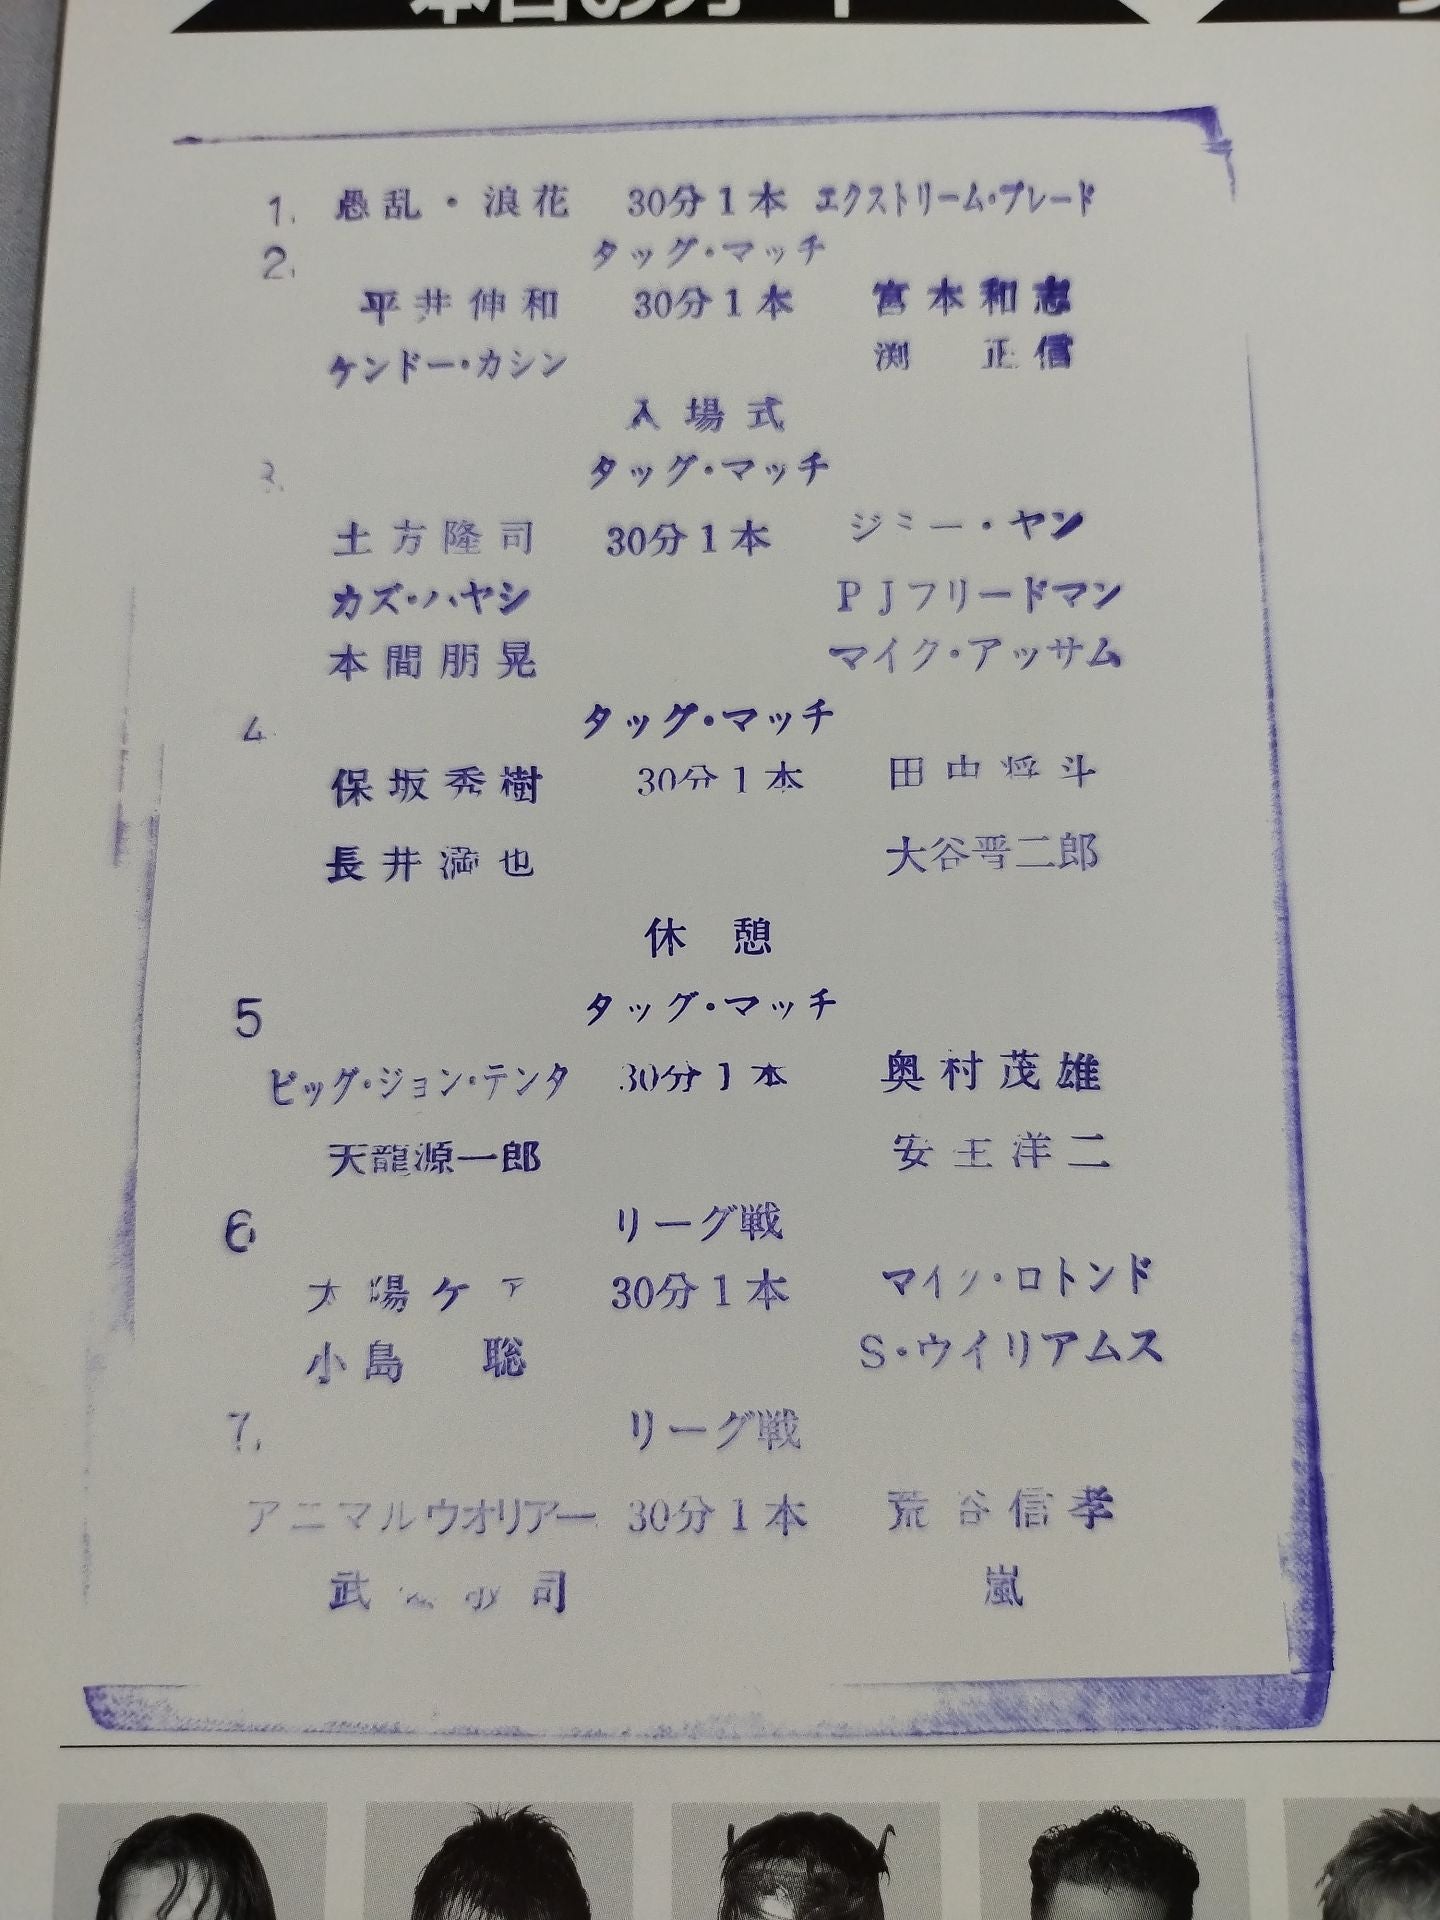 本日のカード
1. 愚乱・浪花 30分1本 エクストリーム・ブレード
2. タッグ・マッチ
平井伸和 30分1本 宮本和志
ケンドー・カシン 渕 正信
入場式
3. タッグ・マッチ
土方隆司 30分1本 ジミー・ヤン
カズ・ハヤシ PJフリードマン
本間朋晃 マイク・アッサム
4 タッグ・マッチ
保坂秀樹 30分1本 田中将斗
長井満也 大谷晋二郎
休憩
5 タッグ・マッチ
ビッグ・ジョン・テンタ 30分1本 奥村茂雄
天龍源一郎 安生洋二
6 リーグ戦
太陽ケア 30分1本 マイク・ロトンド
小島 聡 S・ウイリアムス
7. リーグ戦
アニマルウオリアー 30分1本 荒谷信孝
武 司 嵐